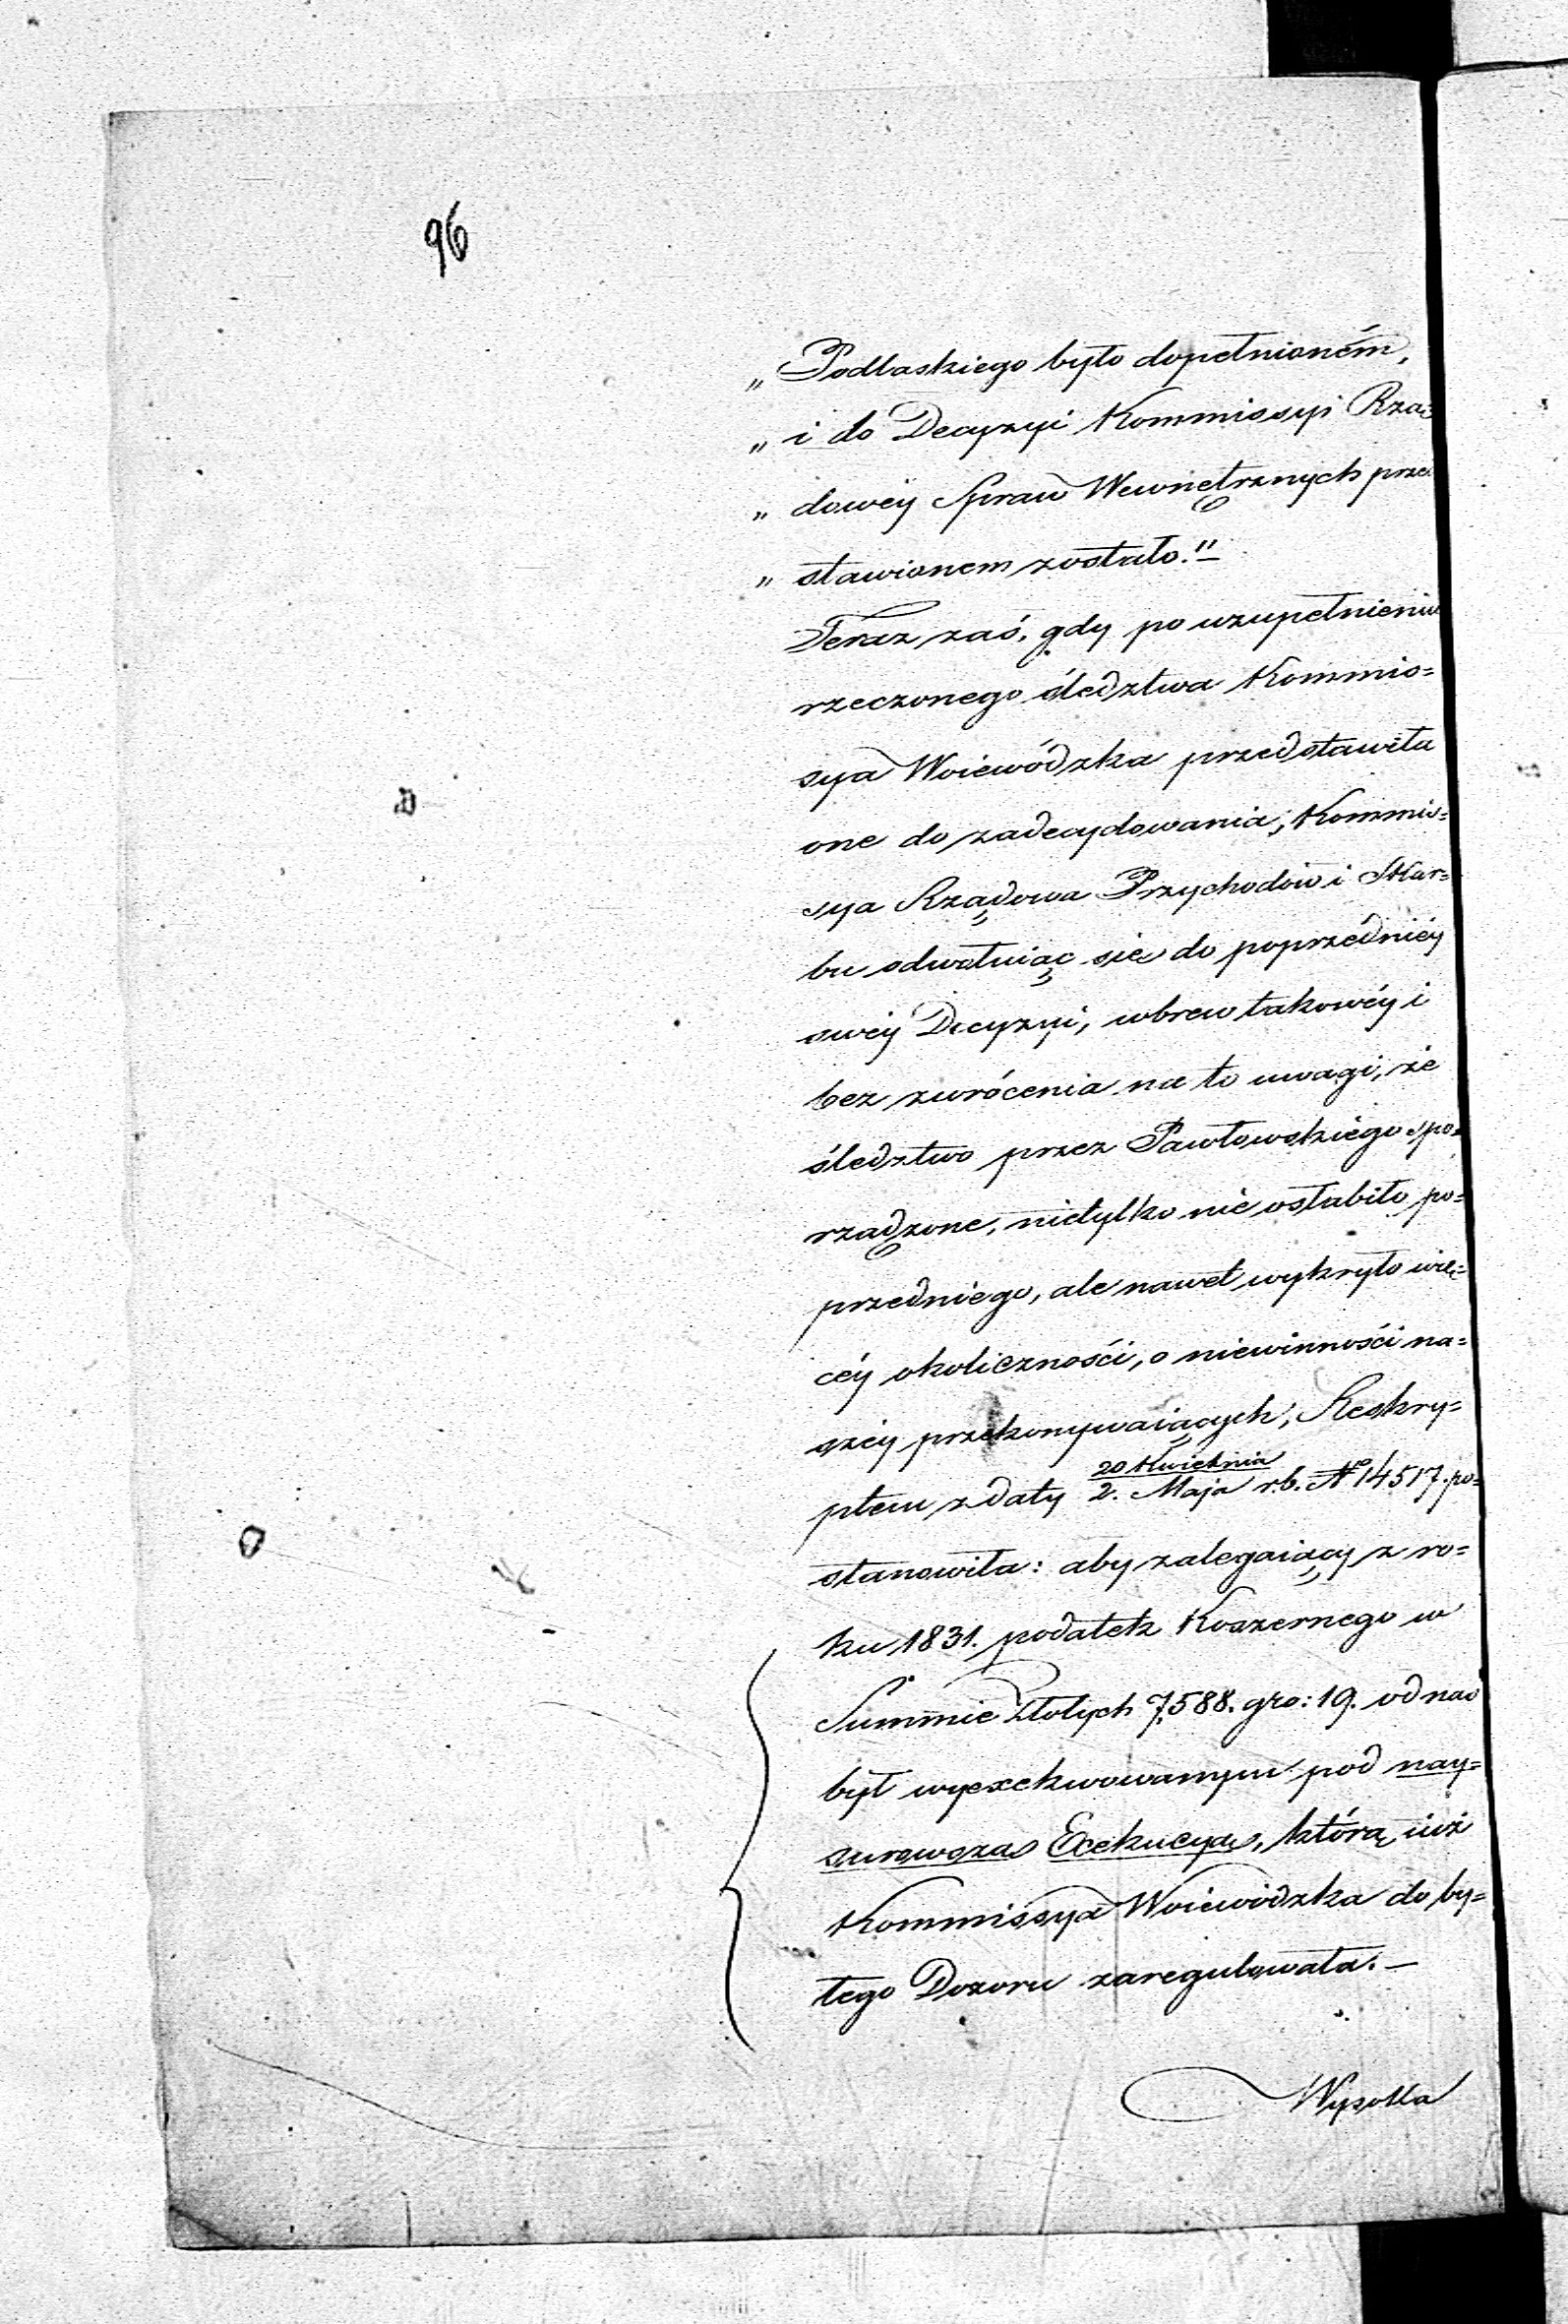 96
„ Podlaskiego było dopełnioném,
„ i do Decyzyi Kommissyi Rzą=
„ dowéy Spraw Wewnętrznych prze
„ stawionem zostało."
Teraz zaś, gdy po uzupełnieniu
rzeczonego śledztwa Kommis=
sya Woiewódzka przedstawiła
one do zadecydowania; Kommis=
sya Rządowa Przychodów i Skar=
bu odwołuiąc się do poprzedniéy
swéy Decyzyi, wbrew takowéy i
bez zwrócenia na to uwagi, że
śledztwo przez Pawłowskiego spo=
rządzone, nietylko nie osłabiło po=
przedniego, ale nawet wykryło wię=
céy okoliczności, o niewinności na=
széy przekonywaiących; Reskry=
ptem z daty 20 Kwietnia
2. Maja r.b. No 14517. po=
stanowiła: aby zalegaiący z ro=
ku 1831. podatek Koszernego w
Summie Złotych 7,588. gro: 19. od nas
był wyexekwowanym pod nay=
surowszą Exekucyą, którą iuż
Kommissya Woiewódzka do by=
łego Dozoru zaregulowała. —